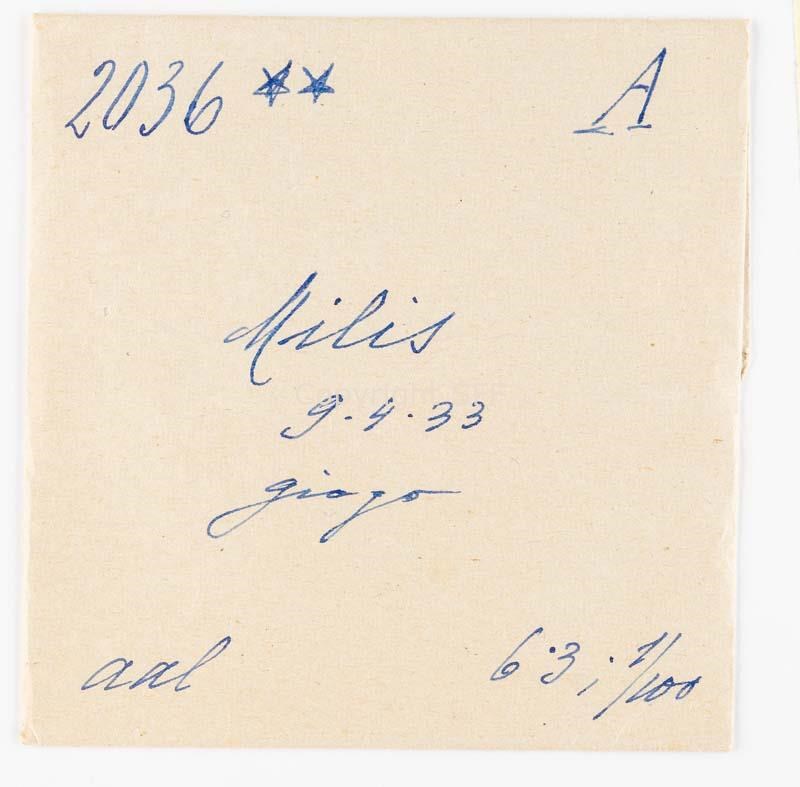 2036 ** A
Milis
9.4.33
giogo
aal 6.3; 1/100